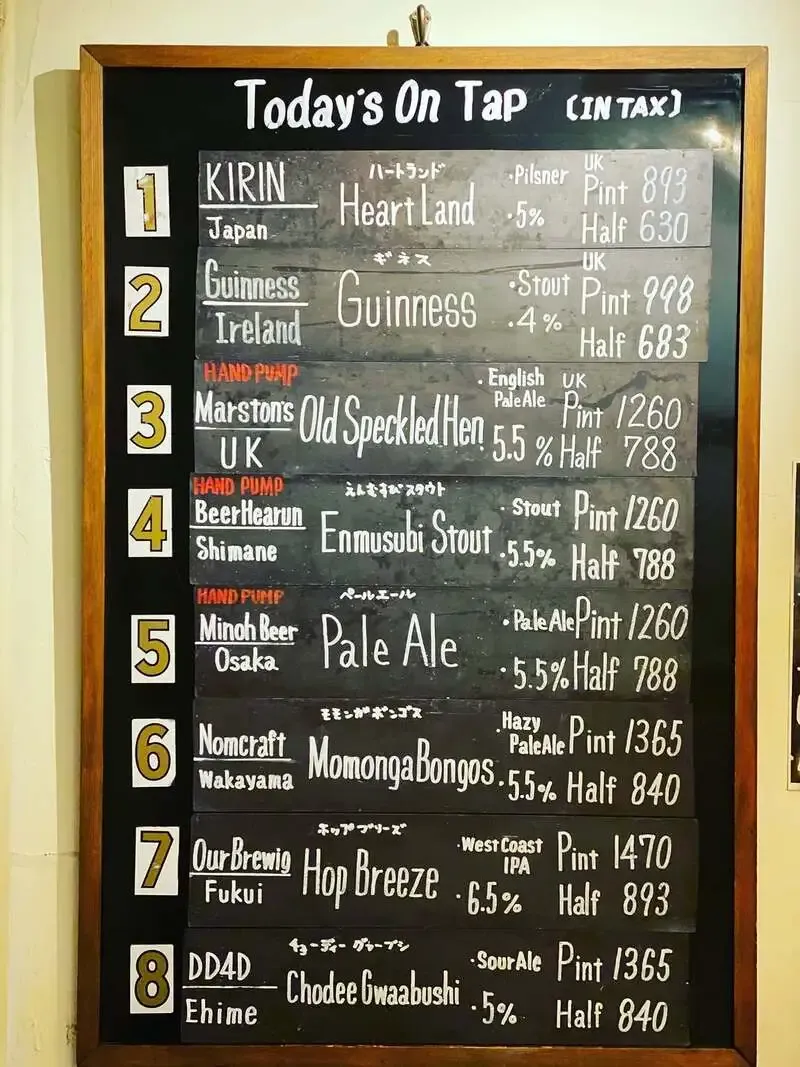 Today's On Tap (IN TAX)
1
KIRIN
Japan
ハートランド
Heart Land
・Pilsner
・5%
UK
Pint 893
Half 630
2
Guinness
Ireland
ギネス
Guinness
・Stout
・4%
UK
Pint 998
Half 683
3
HAND PUMP
Marston's
UK
Old Speckled Hen
・English
Pale Ale
5.5%
UK
Pint 1260
Half 788
4
HAND PUMP
BeerHearun
Shimane
えんむすびスタウト
Enmusubi Stout
・Stout
・5.5%
Pint 1260
Half 788
5
HAND PUMP
Minoh Beer
Osaka
ペールエール
Pale Ale
・Pale Ale
・5.5%
Pint 1260
Half 788
6
Nomcraft
Wakayama
モモンガボンゴス
Momonga Bongos
・Hazy
Pale Ale
・5.5%
Pint 1365
Half 840
7
OurBrewig
Fukui
ホップブリーズ
Hop Breeze
・West Coast
IPA
・6.5%
Pint 1470
Half 893
8
DD4D
Ehime
チョーディーグヮーブシ
Chodee Gwaabushi
・Sour Ale
・5%
Pint 1365
Half 840